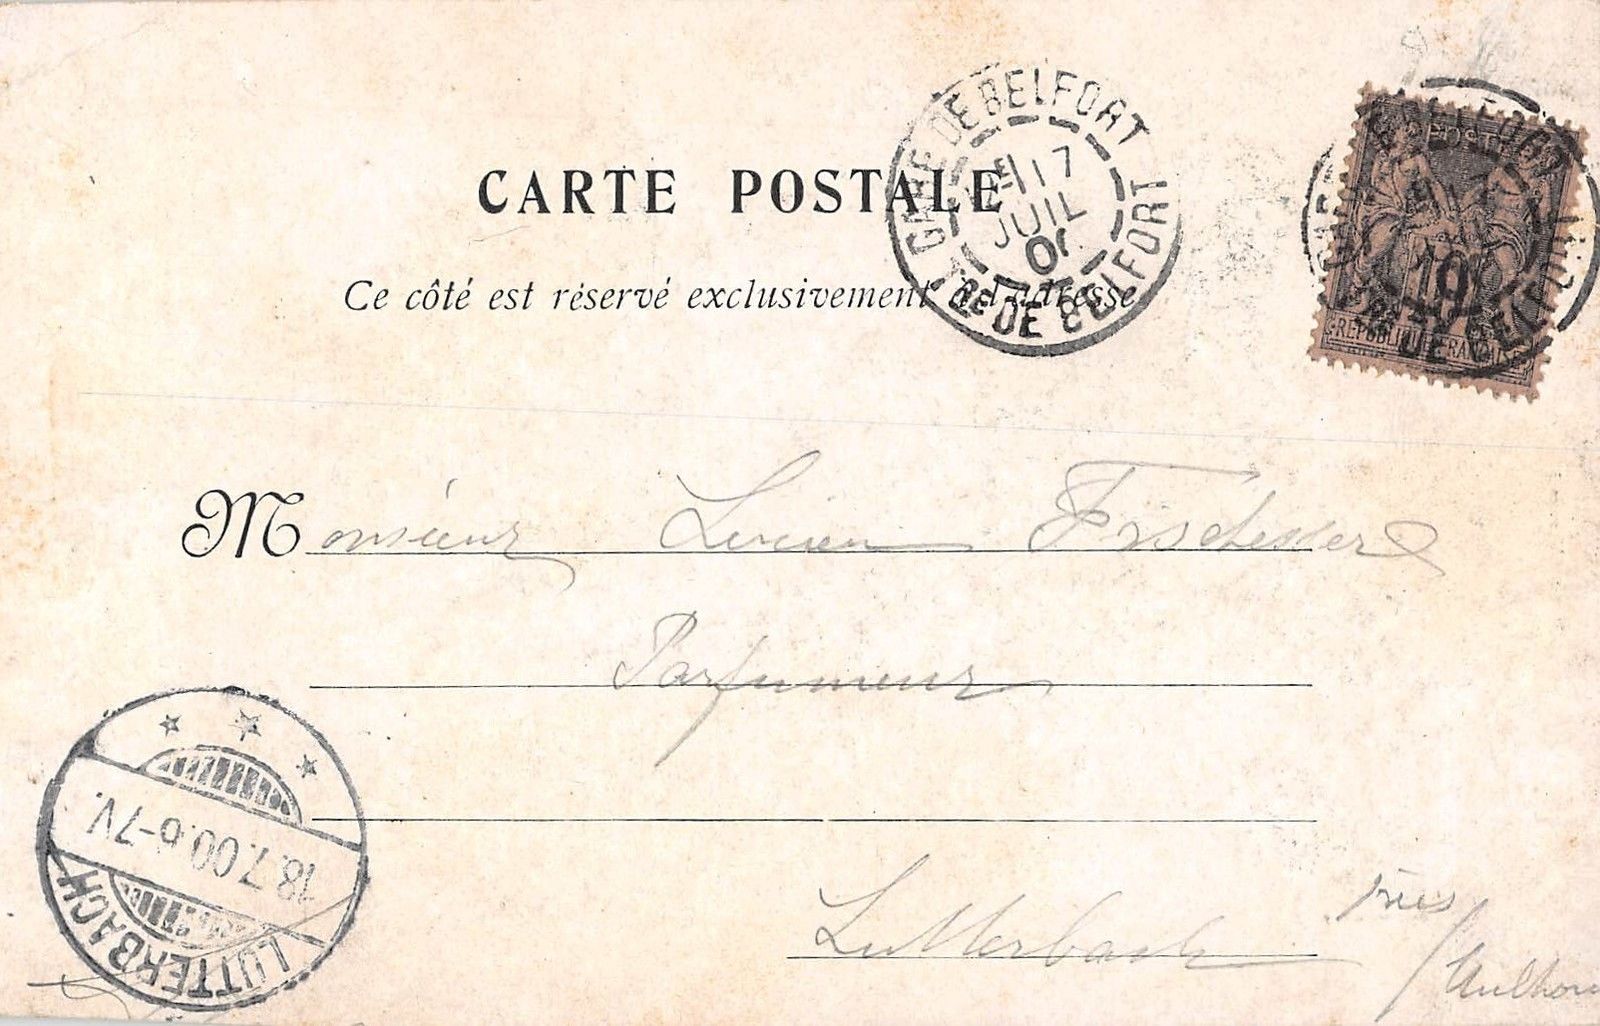 GARE DE BELFORT
17
JUIL
00
Bt DE BELFORT
CARTE POSTALE
Ce côté est réservé exclusivement à l'adresse
REPUBLIQUE FRANCAISE
DE BELFORT
Monsieur Lucien Fischesser
Parfumeur
Lutterbach
près
LUTTERBACH
18.7.00.6-7V.